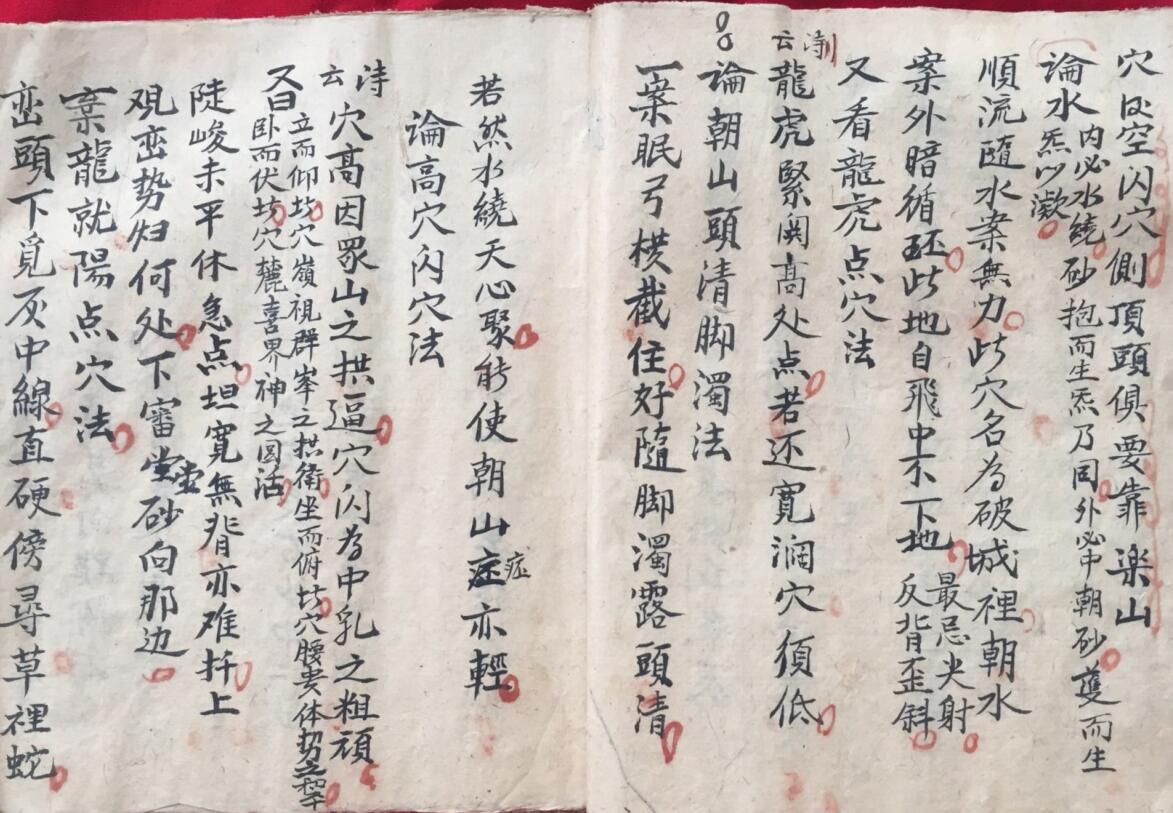 穴凹空闪穴側頂頭俱要靠楽山
論水 内必水繞砂抱而生炁乃同外必中朝砂護而生
炁以凝
順流隨水案無力此穴名為破城裡朝水
案外暗循环此地自飛中不下地 最忌尖射
反背歪斜
又看龍虎点穴法
诗云 龍虎緊関高处点若还寬濶穴須低
論朝山頭清脚濁法
一案眠弓横截住好隨脚濁露頭清
若然水繞天心聚能使朝山症症亦輕
論高穴闪穴法
诗云 穴高因眾山之拱逼穴闪為中乳之粗頑
又曰 立而仰扦穴嶺視群峯之拱衛坐而俯扦穴腰贵体势之平
卧而伏扦穴麓喜界神之圆活
陡峻未平休急点坦寬無背亦难扦上
观峦势归何处下審堂堂砂向那边
棄龍就陽点穴法
峦頭下覓灰中線直硬傍尋草裡蛇